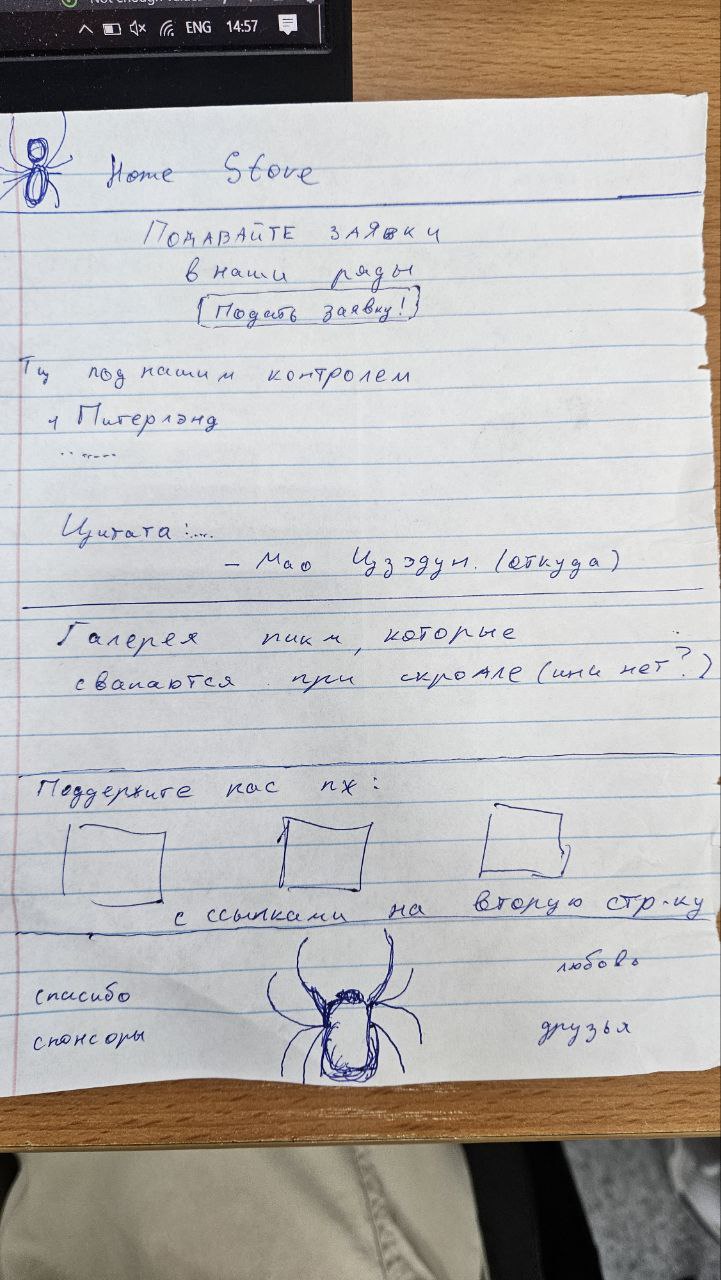 ENG 14:57
Home Store
ПОДАВАЙТЕ ЗАЯВКИ
в наши ряды
Подать заявку!
Тц под нашим контролем
Питерлэнд
Цитата:....
- Мао Цзэдун. (откуда)
Галерея пикч, которые
свапаются при скролле (или нет?)
Поддержите нас пж:
с ссылками на вторую стр-ку
любовь
спасибо
спонсоры
друзья